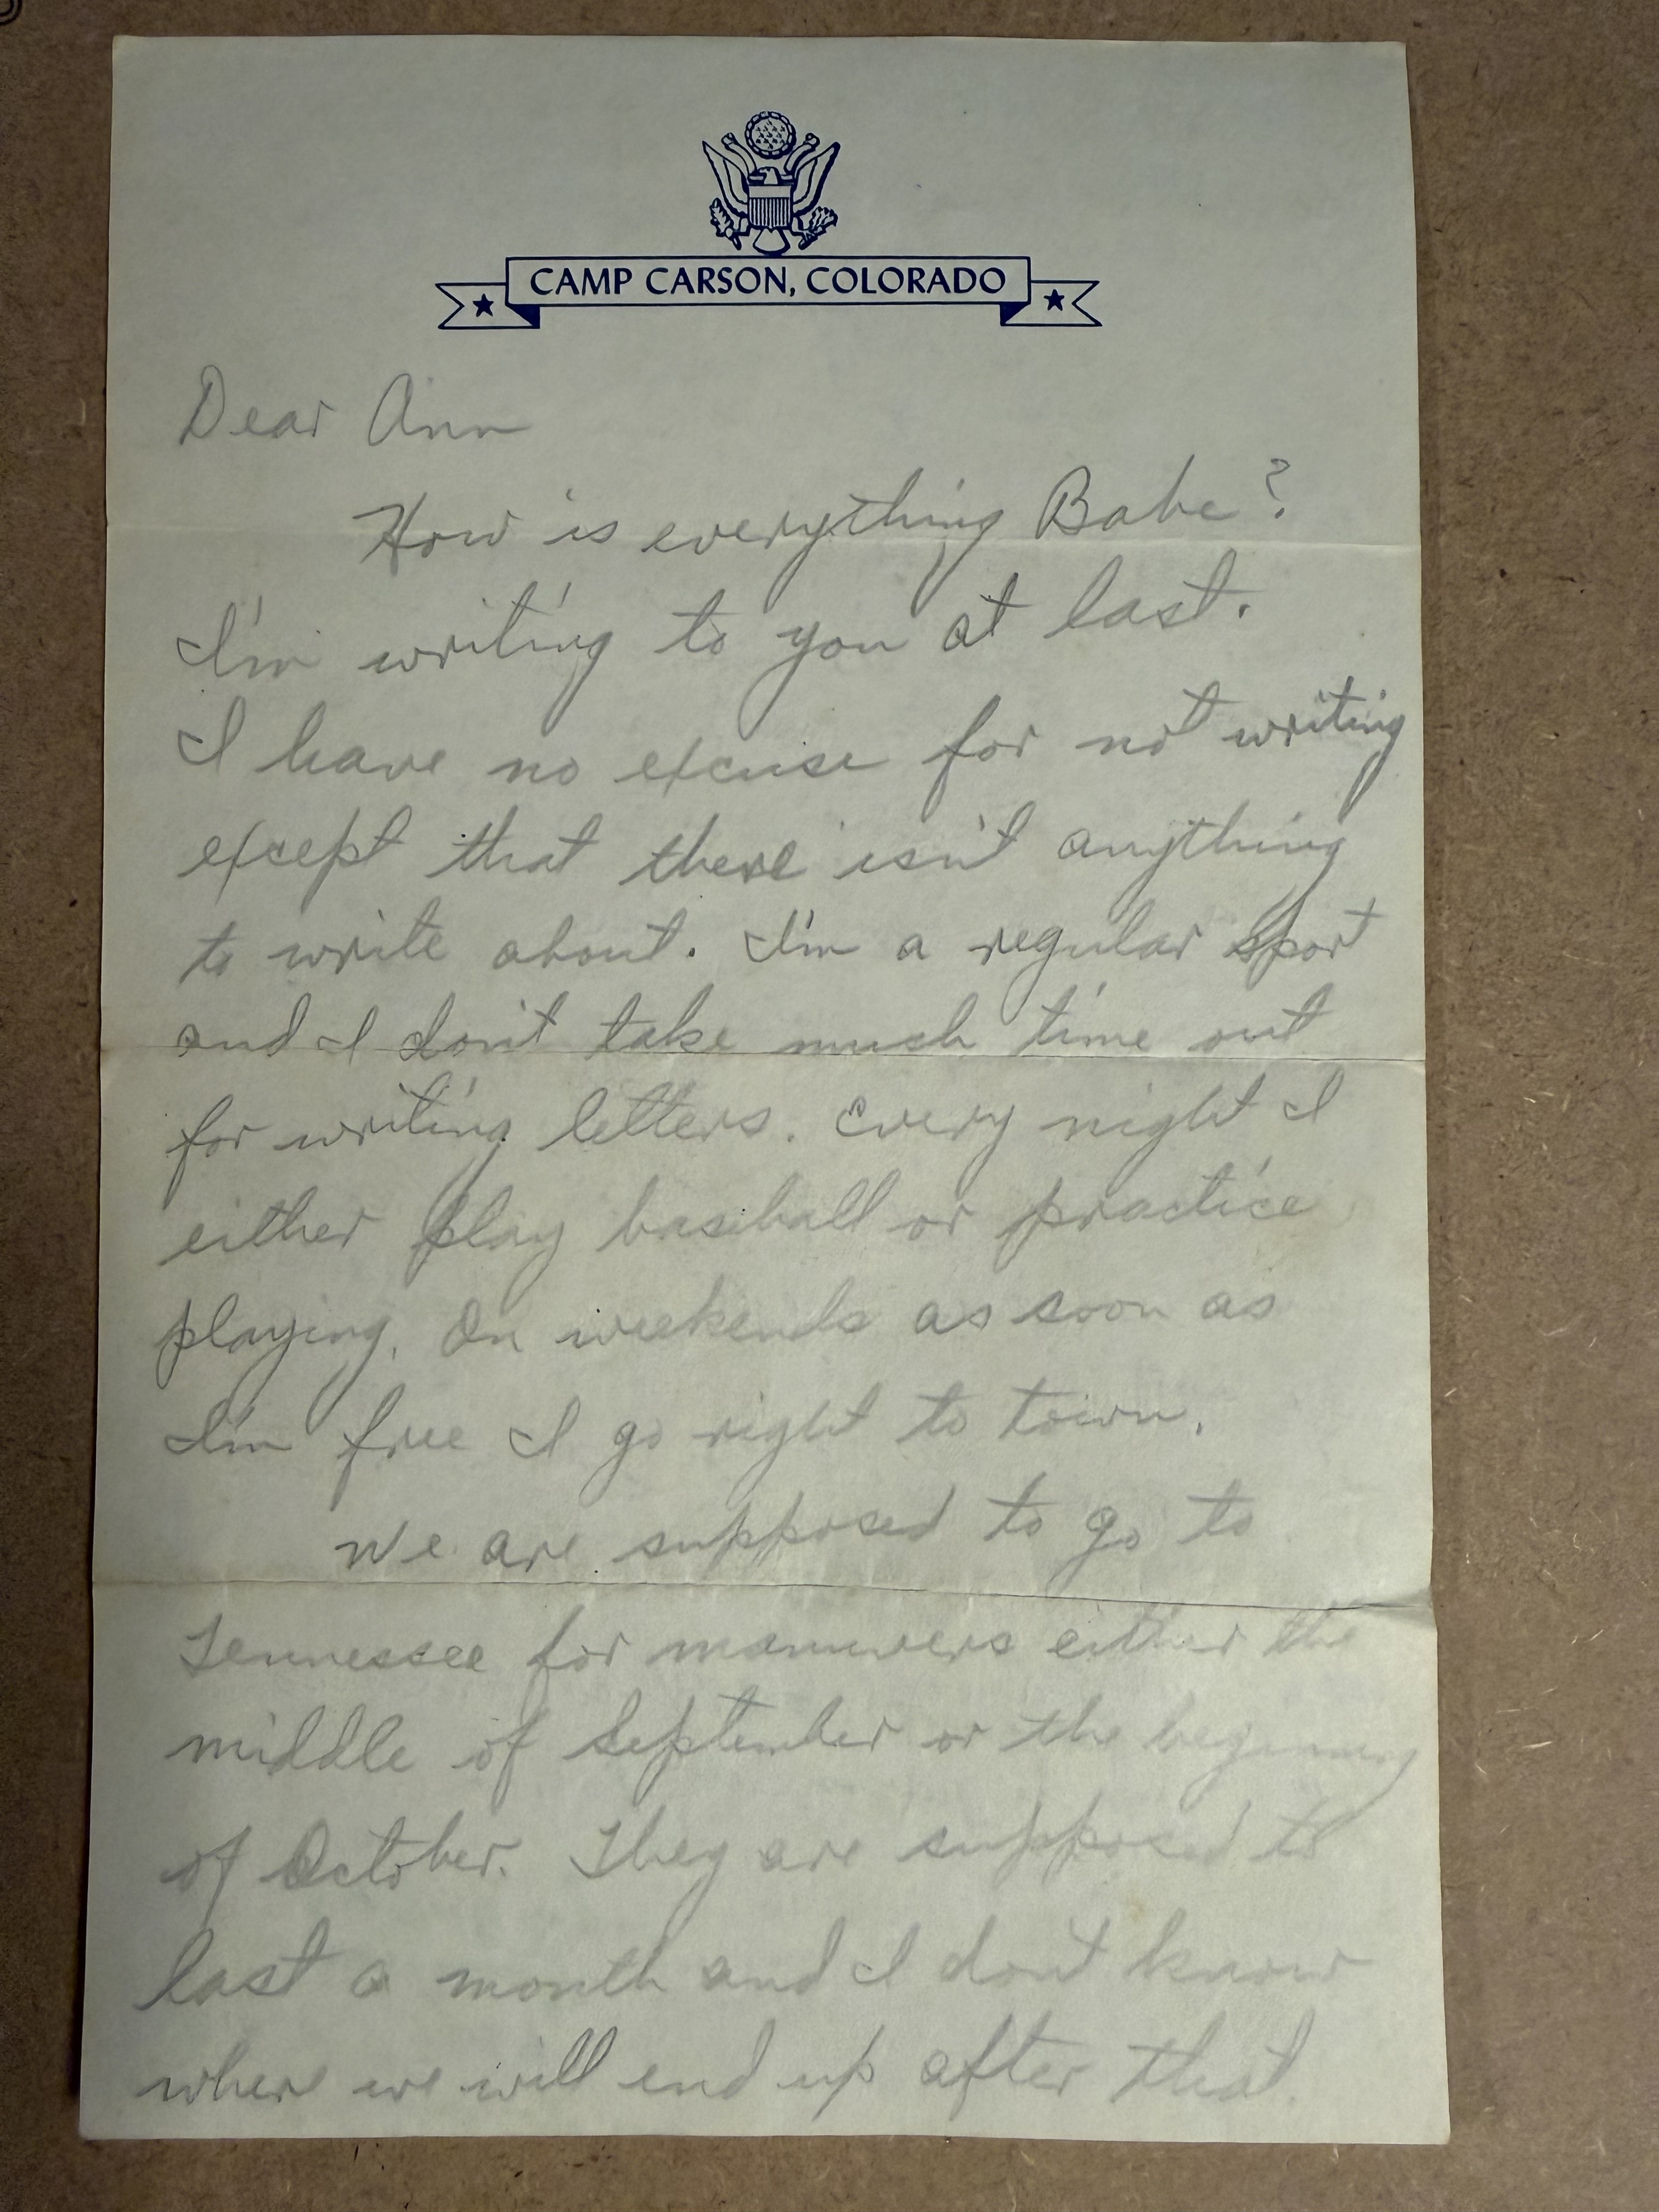 CAMP CARSON, COLORADO
Dear Ann
How is everything Babe?
I'm writing to you at last.
I have no excuse for not writing
except that there isn't anything
to write about. I'm a regular sport
and I don't take much time out
for writing letters. Every night I
either play baseball or practice
playing. On weekends as soon as
I'm free I go right to town.
We are supposed to go to
Tennessee for manuvers either the
middle of September or the beginning
of October. They are supposed to
last a month and I don't know
where we will end up after that.